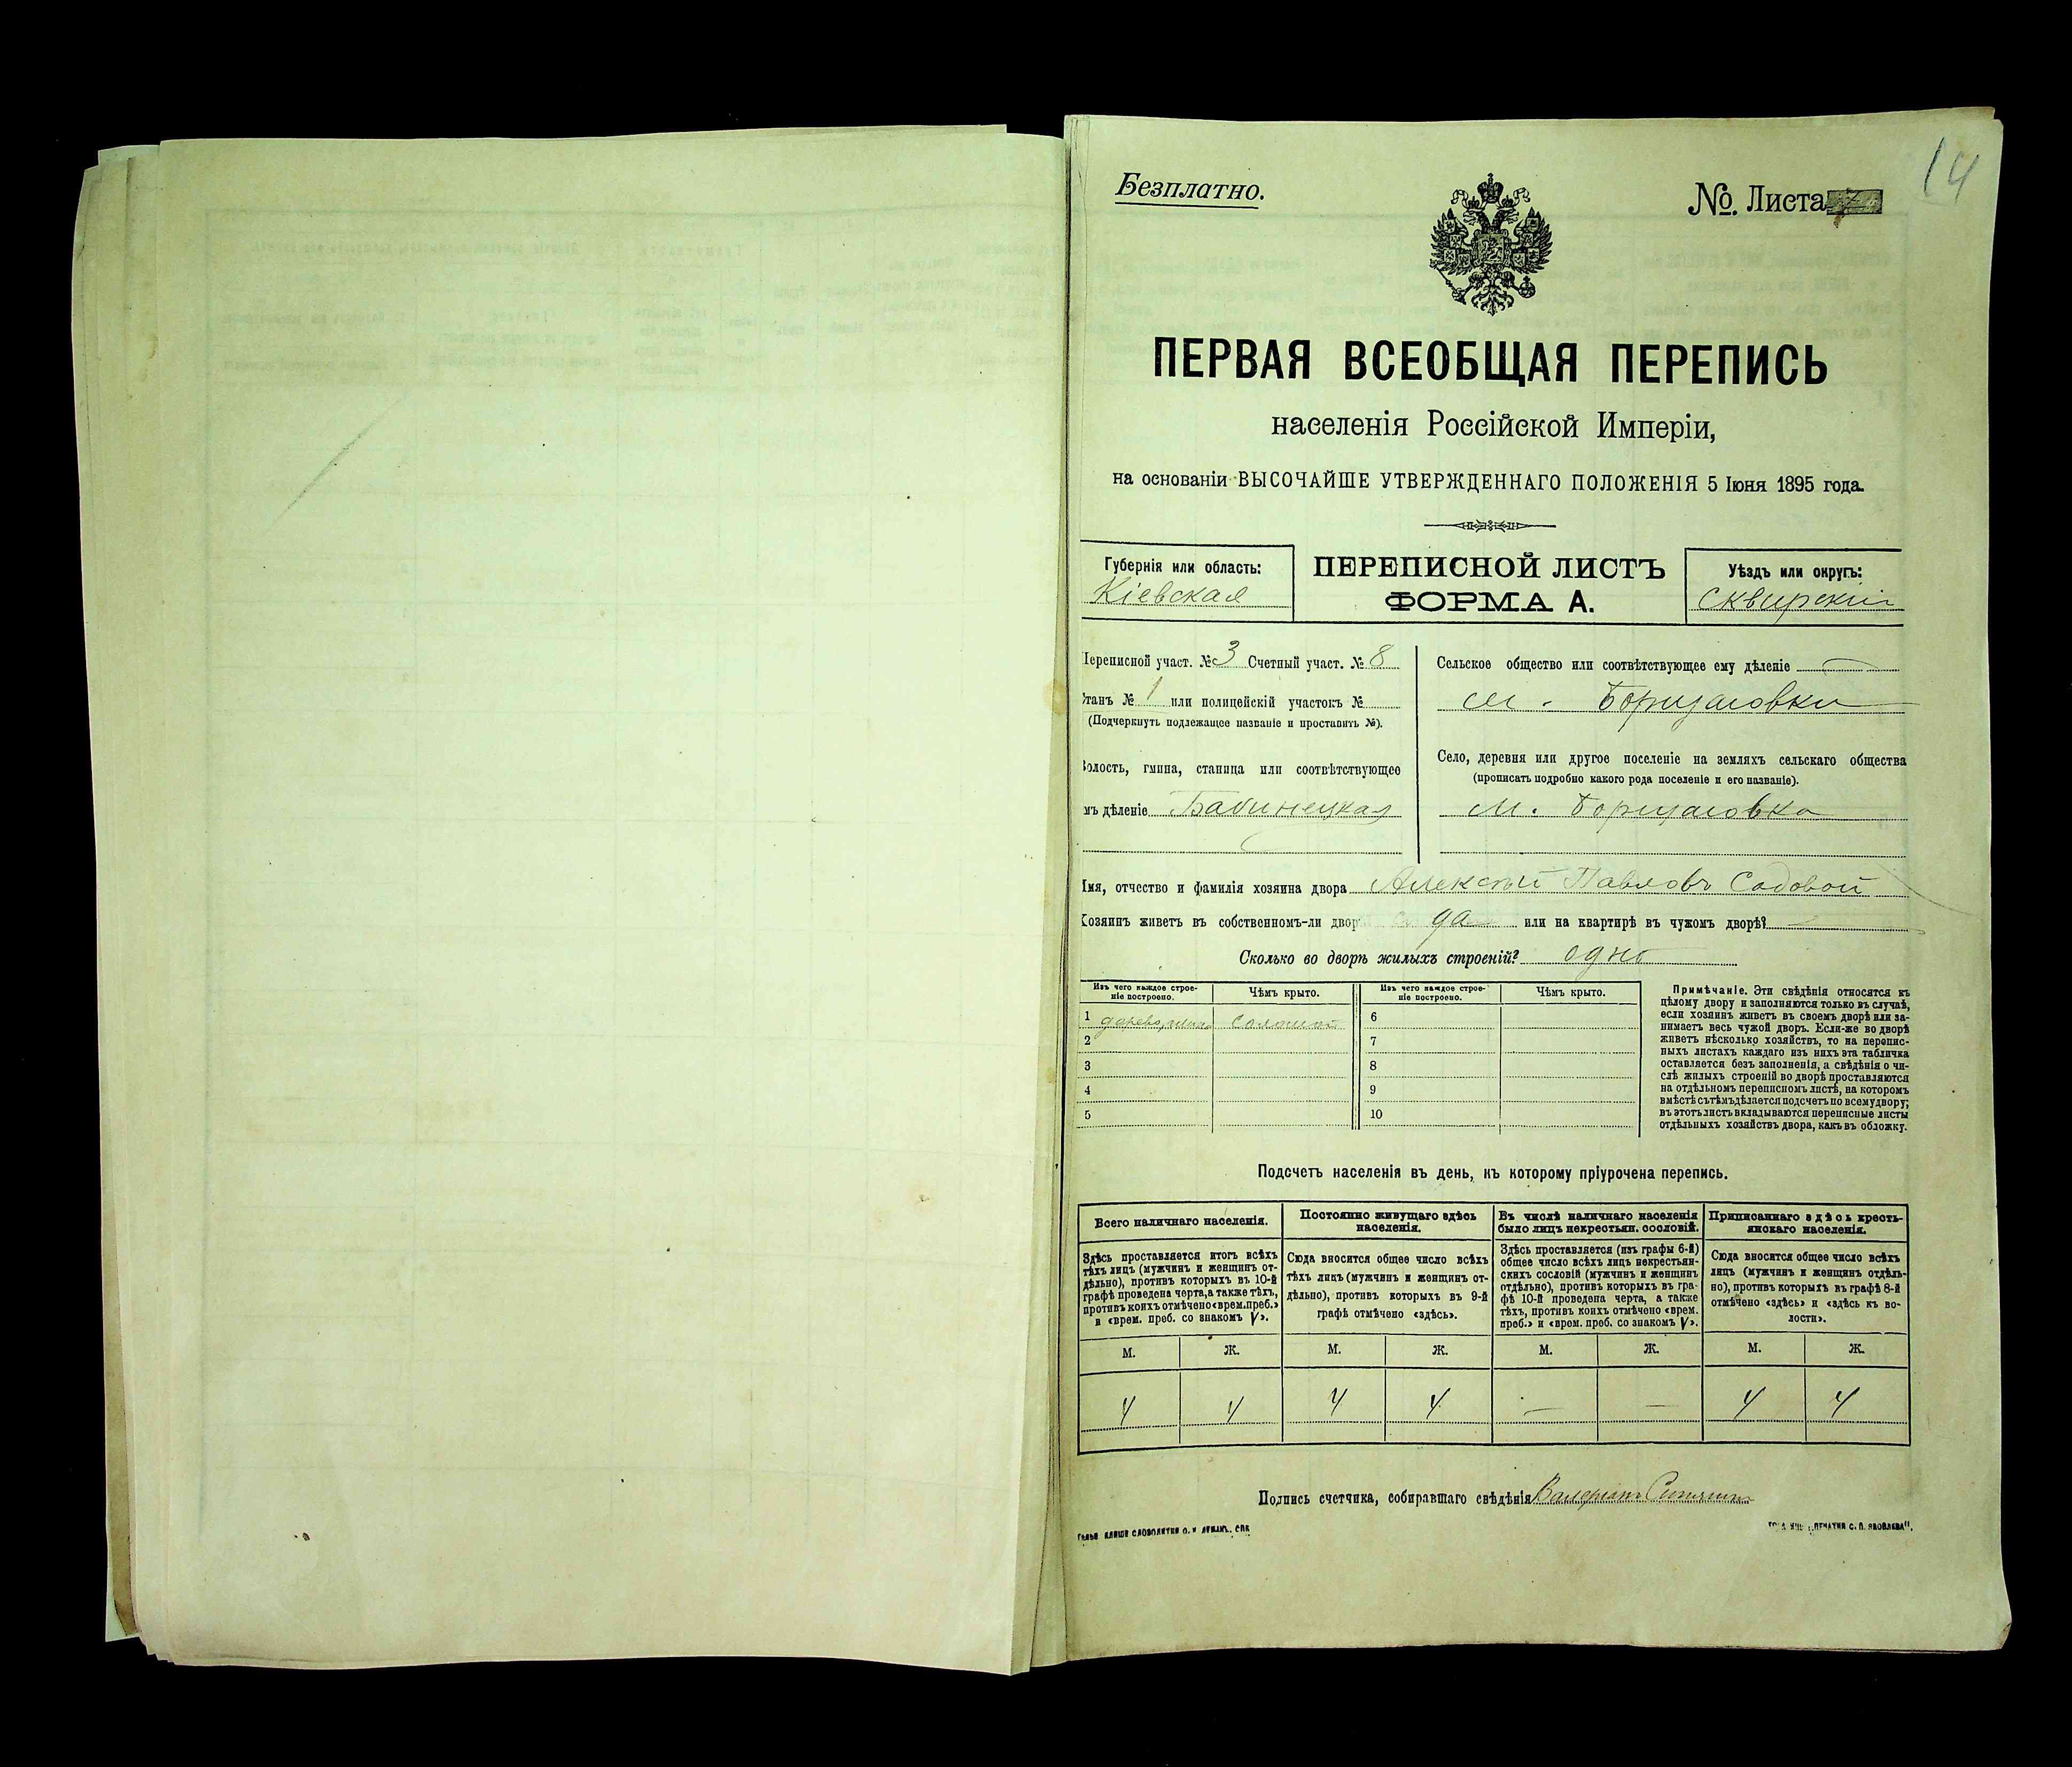 14
Безплатно.
№. Листа 7
ПЕРВАЯ ВСЕОБЩАЯ ПЕРЕПИСЬ
населенія Россійской Имперіи,
на основаніи ВЫСОЧАЙШЕ УТВЕРЖДЕННАГО ПОЛОЖЕНІЯ 5 Іюня 1895 года.
Губернія или область:
Кіевская
ПЕРЕПИСНОЙ ЛИСТЪ
ФОРМА А.
Уѣздъ или округъ:
Сквирскій
Переписной участ. № 3 Счетный участ. № 8
Станъ № 1 или полицейскій участокъ №
(Подчеркнуть подлежащее названіе и проставить №).
Волость, гмина, станица или соотвѣтствующее
мъ дѣленіе Бабинецкая
Сельское общество или соотвѣтствующее ему дѣленіе
м. Борщаговки
Село, деревня или другое поселеніе на земляхъ сельскаго общества
(прописать подробно какого рода поселеніе и его названіе).
м. Борщаговка
Имя, отчество и фамилія хозяина двора Алексѣй Павловъ Садовой
Хозяинъ живетъ въ собственномъ-ли двор да или на квартирѣ въ чужомъ дворѣ?
Сколько во дворѣ жилыхъ строеній? одно
Изъ чего каждое строе-
ніе построено.
Чѣмъ крыто.
Изъ чего каждое строе-
ніе построено.
Чѣмъ крыто.
1 соломой 6
2 7
3 8
4 9
5 10
Примѣчаніе. Эти свѣдѣнія относятся къ
цѣлому двору и заполняются только въ случаѣ,
если хозяинъ живетъ въ своемъ дворѣ или за-
нимаетъ весь чужой дворъ. Если-же во дворѣ
живетъ нѣсколько хозяйствъ, то на перепис-
ныхъ листахъ каждаго изъ нихъ эта табличка
оставляется безъ заполненія, а свѣдѣнія о чи-
слѣ жилыхъ строеній во дворѣ проставляются
на отдѣльномъ переписномъ листѣ, на которомъ
вмѣстѣ съ тѣмъ дѣлается подсчетъ по всему двору;
въ этотъ листъ вкладываются переписные листы
отдѣльныхъ хозяйствъ двора, какъ въ обложку.
Подсчетъ населенія въ день, къ которому пріурочена перепись.
Всего наличнаго населенія.
Здѣсь проставляется итогъ всѣхъ
тѣхъ лицъ (мужчинъ и женщинъ от-
дѣльно), противъ которыхъ въ 10-й
графѣ проведена черта, а также тѣхъ,
противъ коихъ отмѣчено «врем. преб.»
и «врем. преб. со знакомъ V».
Постоянно живущаго здѣсь
населенія.
Сюда вносится общее число всѣхъ
тѣхъ лицъ (мужчинъ и женщинъ от-
дѣльно), противъ которыхъ въ 9-й
графѣ отмѣчено «здѣсь».
Въ числѣ наличнаго населенія
было лицъ некрестьян. сословій.
Здѣсь проставляется (изъ графы 6-й)
общее число всѣхъ лицъ некрестьян-
скихъ сословій (мужчинъ и женщинъ
отдѣльно), противъ которыхъ въ гра-
фѣ 10-й проведена черта, а также
тѣхъ, противъ коихъ отмѣчено «врем.
преб.» и «врем. преб. со знакомъ V».
Приписаннаго здѣсь кресть-
янскаго населенія.
Сюда вносится общее число всѣхъ
лицъ (мужчинъ и женщинъ отдѣль-
но), противъ которыхъ въ графѣ 8-й
отмѣчено «здѣсь» и «здѣсь къ во-
лости».
М. Ж. М. Ж. М. Ж. М. Ж.
4 4 4 4 — — 4 4
Подпись счетчика, собиравшаго свѣдѣнія Валеріанъ